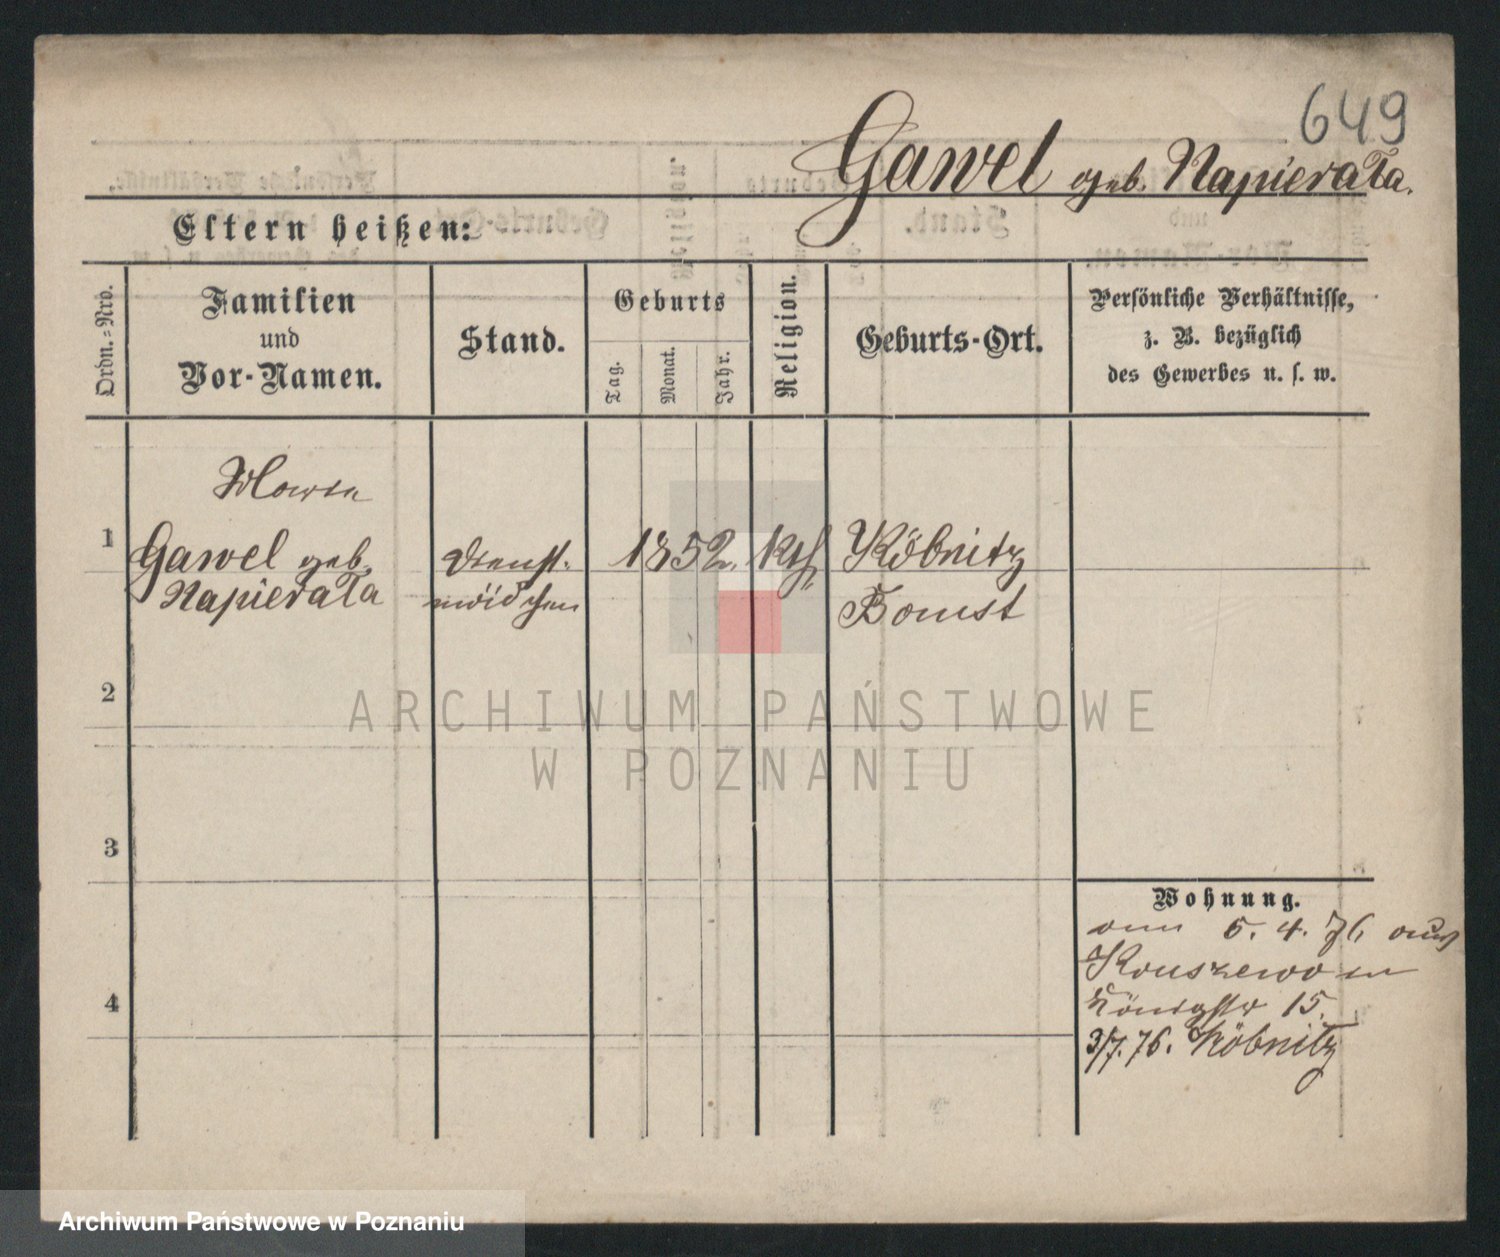 649
Gawel geb. Napierata.
Eltern heißen:
Ordn.-Nro.
Familien
und
Vor-Namen.
Stand.
Geburts
Tag.
Monat.
Jahr.
Religion.
Geburts-Ort.
Persönliche Verhältnisse,
z. B. bezüglich
des Gewerbes u. s. w.
1
Gawel geb.
Napierata
Dienst-
mädchen
1852.
kth
Köbnitz
Bomst
2
3
4
Wohnung.
5. 4. 76 aus
Kruszewo in
Königstr 15.
3/7. 76. Köbnitz
ARCHIWUM PAŃSTWOWE
W POZNANIU
Archiwum Państwowe w Poznaniu